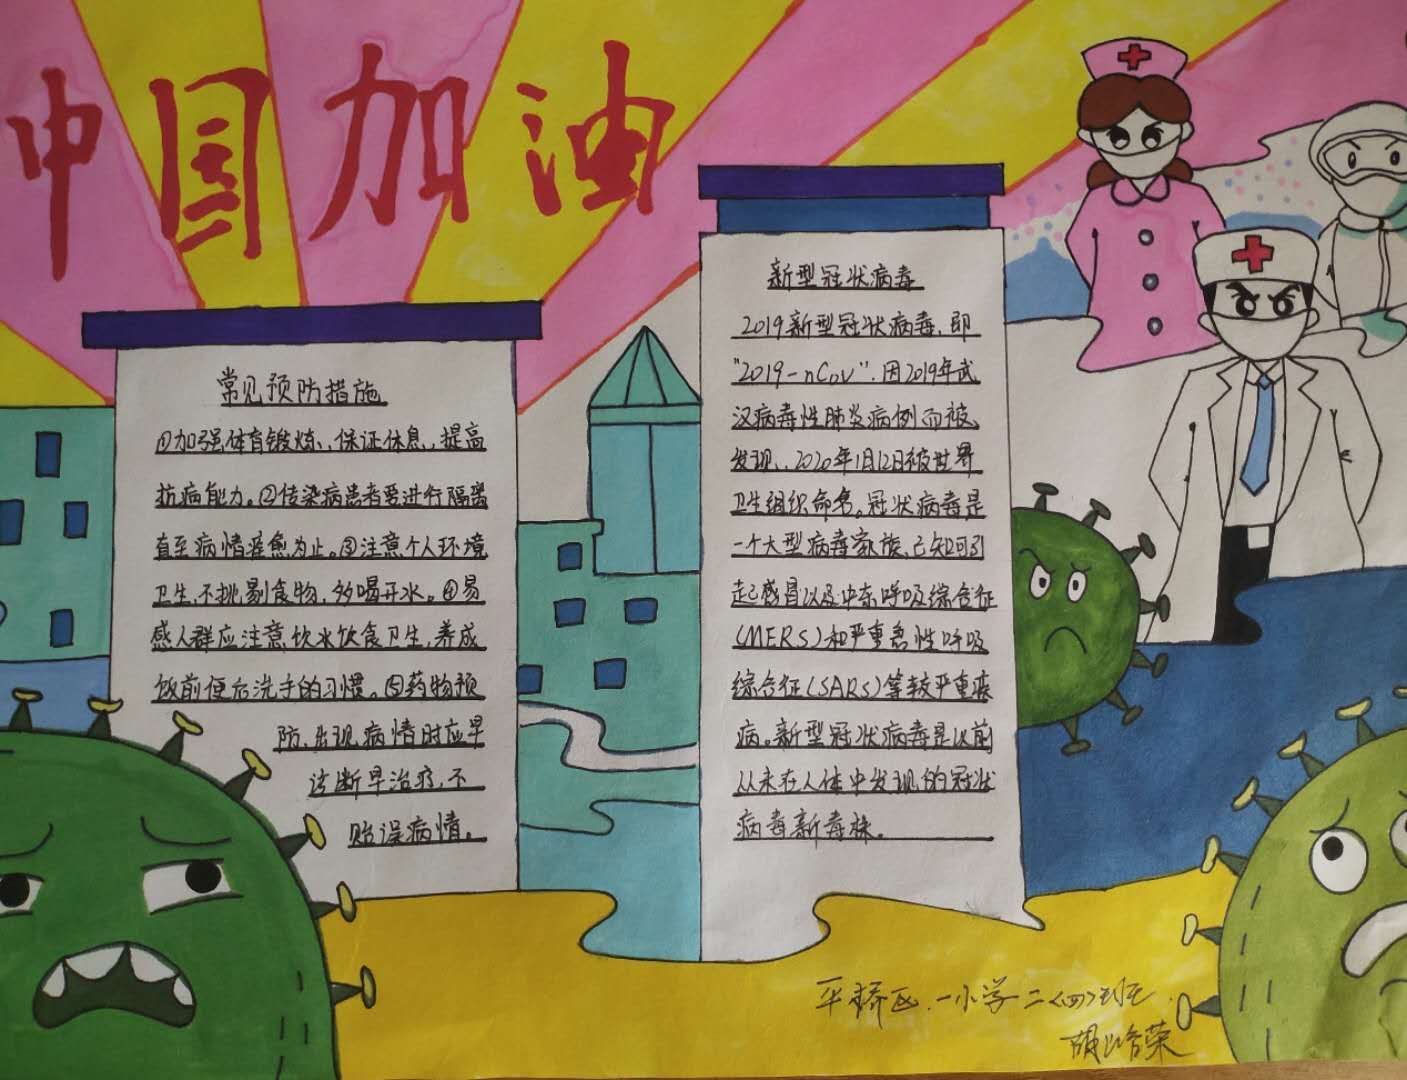 中国加油
常见预防措施
①加强体育锻炼、保证休息，提高
抗病能力。②传染病患者要进行隔离
直至病情痊愈为止。③注意个人环境
卫生，不挑剔食物，多喝开水。④易
感人群应注意饮水饮食卫生，养成
饭前便后洗手的习惯。⑤药物预
防、出现病情时应早
诊断早治疗，不
贻误病情。
新型冠状病毒
2019新型冠状病毒，即
"2019-nCoV"，因2019年武
汉病毒性肺炎病例而被
发现、2020年1月12日被世界
卫生组织命名。冠状病毒是
一个大型病毒家族，已知可引
起感冒以及中东呼吸综合征
(MERS)和严重急性呼吸
综合征(SARS)等较严重疾
病。新型冠状病毒是以前
从未在人体中发现的冠状
病毒新毒株。
平桥区一小学二<四>班
胡荣